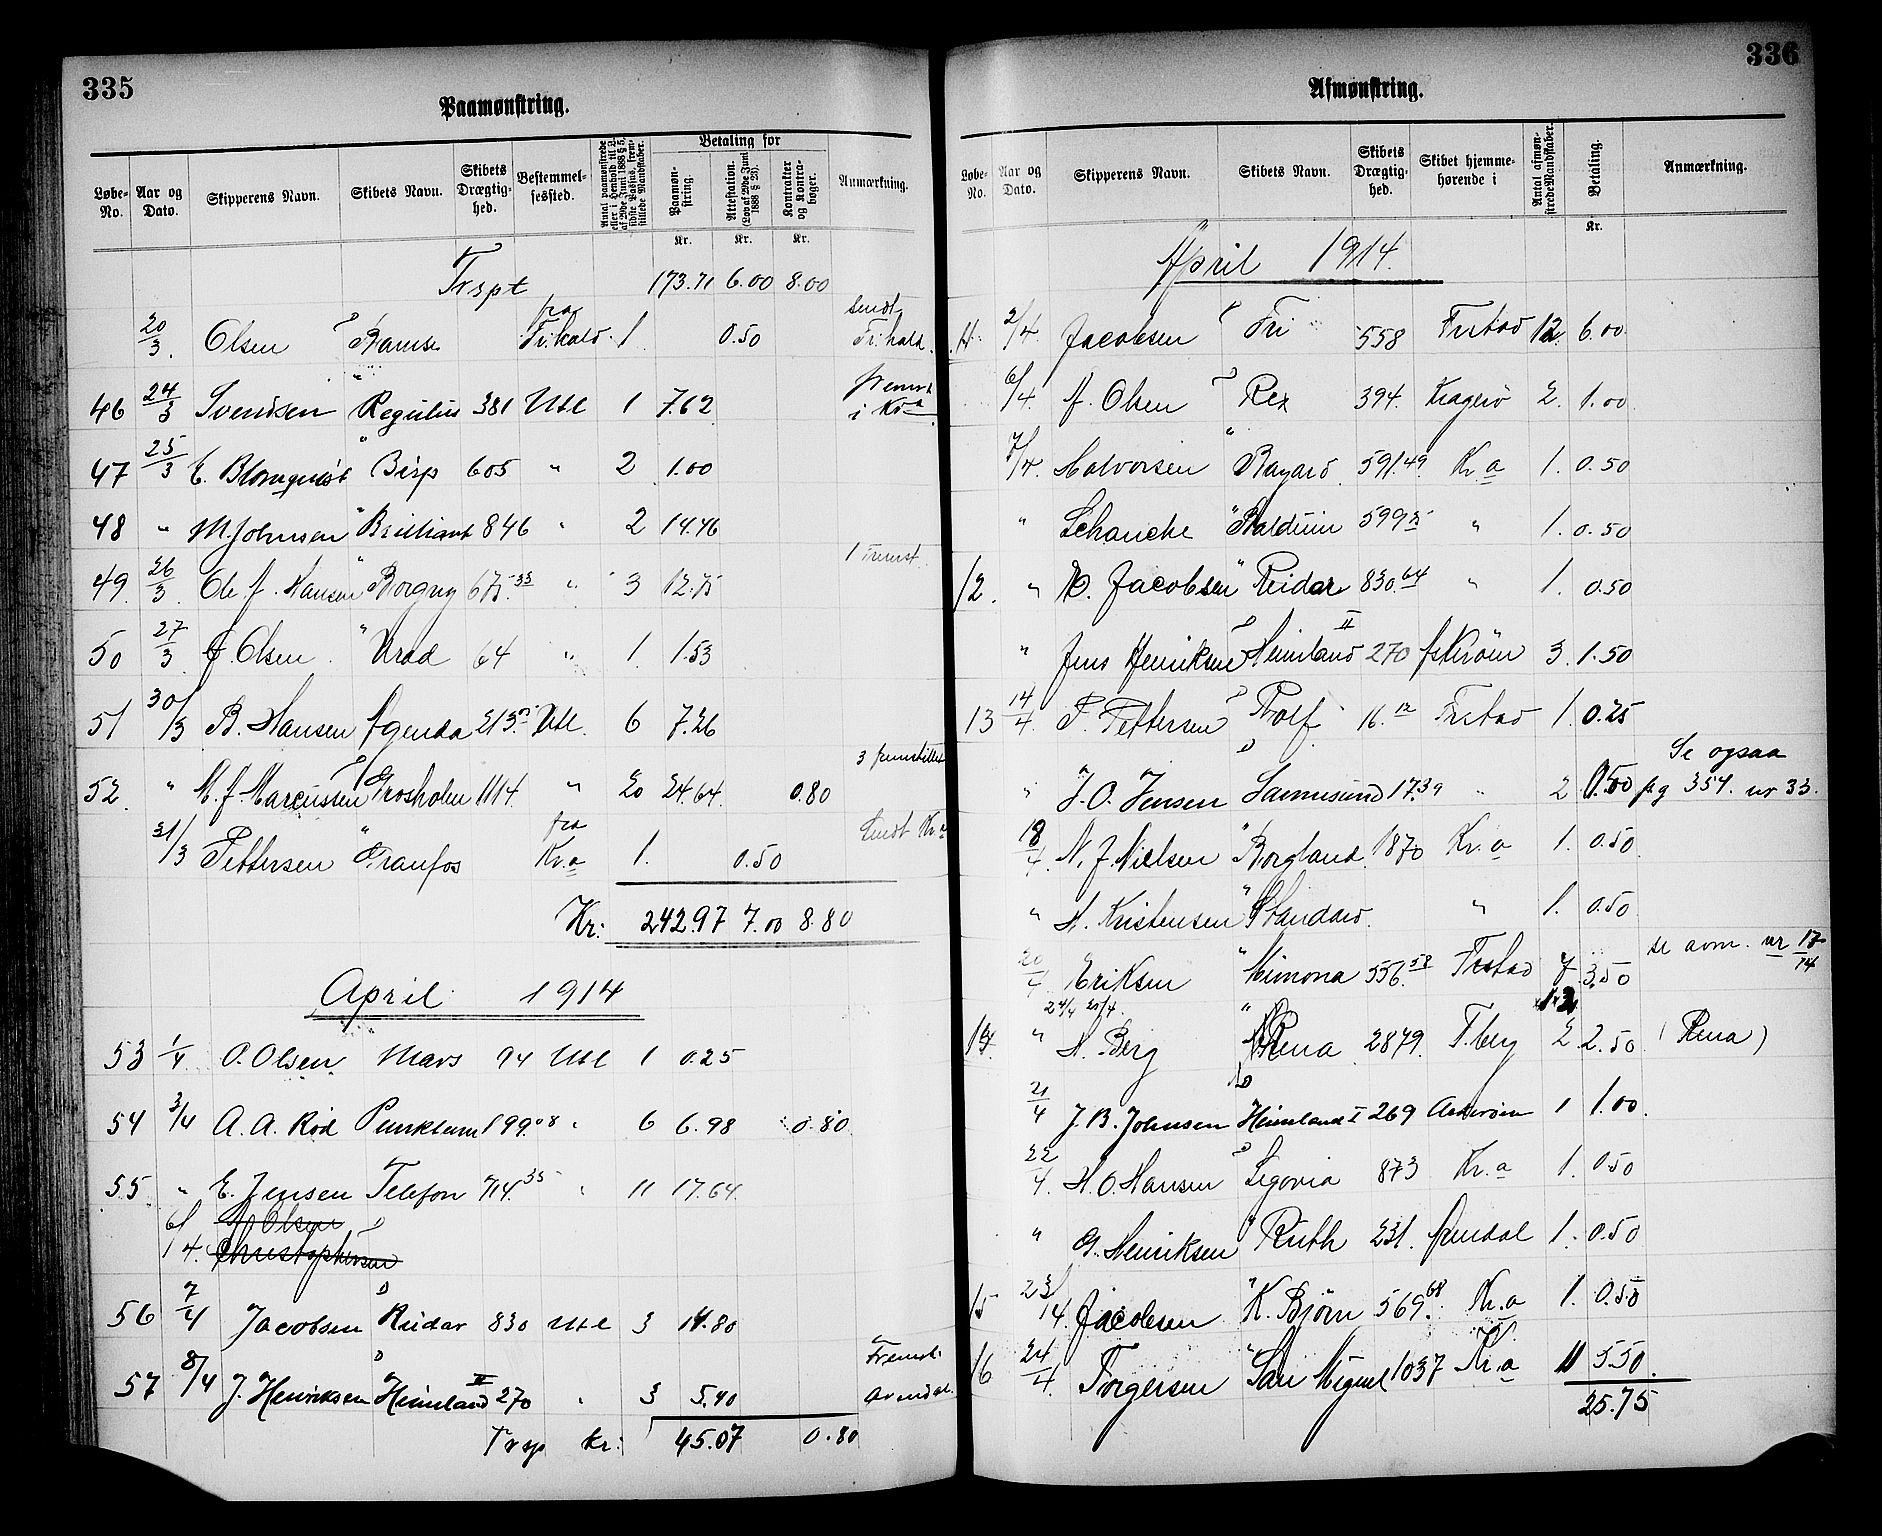 335
Paamønstring.
Løbe-No. Aar og Dato. Skipperens Navn. Skibets Navn. Skibets Drægtighed. Bestemmelsessted. Antal paamønstrede eller i Henhold til Lov af 29de Juni 1888 § 5, sidste Passus, fremstillede Mandskaber. Betaling for Paamønstring. Attestation. (Lov af 29de Juni 1888 § 23). Kontrakter og Kontrabøger. Anmærkning.
Kr. Kr. Kr.
Trspt 173.71 6.00 8.00
20/3 Olsen " Bamse fra Fr.hald 1 0.50 sendt Fr.hald.
46 24/3 Svendsen " Regulus 381 Utl 1 7.62 fremst i Kra
47 25/3 E. Blomquist " Bisp 605 " 2 1.00
48 " M. Johnsen " Brilliant 846 " 2 14.46
49 26/3 Ole J. Hansen " Borgny 675.33 " 3 12.75 1 Fremst.
50 27/3 J. Olsen " Krad 64 " 1 1.53
51 30/3 B. Hansen Agenda 213 Utl. 6 7.26
52 " M. J. Marcussen " Grosholm 1114 " 20 24.64 0.80 3 fremstillet
31/3 Pettersen " Granfos fra Kr.a 1. 0.50 Sendt Kr.a
Kr: 242.97 7.00 8.80
April 1914
53 1/4 O. Olsen Mars 94 Utl 1 0.25
54 3/4 A. A. Rød Punktum 199.08 " 6 6.98 0.80
55 " E. Jensen Telefon 714.35 " 11 17.64
6/4 Olsen
Christophersen
56 7/4 Jacobsen " Reidar 830 Utl 3 11.80
57 8/4 J. Henriksen " Heimland II 270 " 3 5.40 Fremst. Arendal.
Trsp Kr: 45.07 0.80
336
Afmønstring.
Løbe-No. Aar og Dato. Skipperens Navn. Skibets Navn. Skibets Drægtighed. Skibet hjemmehørende i Antal afmønstrede Mandskaber. Betaling. Anmærkning.
Kr.
April 1914.
11. 2/4 Jacobsen " Fri 558 Fr.stad 12 6.00
6/4 A. Olsen " Rex 394. Kragerø 2. 1.00
7/4 Halvorsen " Bayard 591.49 Kr.a 1. 0.50
" Schancke " Balduin 599 " 1. 0.50
12. " N. Jacobsen " Reidar 830.64 " 1. 0.50
" Jens Henriksen " Heimland II 270 Askerøen 3. 1.50
13 14/4 P. Pettersen " Rolf 16.12 Fr.stad 1. 0.25
" J. O. Jensen " Sannesund 17.39 " 2 0.50 Se ogsaa pg 354. nr 33.
18/4 N. J. Nielsen " Borgland 1870 Kr.a 1. 0.50
" H. Kristensen " Standard " 1. 0.50
20/4 Eriksen " Mimona 556.58 Fr.stad 7 3.50 se avm. nr 17/14
24/4 20/4 12
14 " H. Berg " Rena 2879. T.berg 2 2.50 (Rena)
21/4 J. B. Johnsen " Heimland I 269 Askerøen 1 1.00
22/4 H. O. Hansen " Segovia 873 Kr.a 1. 0.50
" G. Henriksen " Ruth 231. Arendal 1. 0.50
15 23/4 Jacobsen " K. Bjørn 569.68 Kr.a 1. 0.50
16 24/4 Torgersen " San Miguel 1037 Kr.a 11 5.50
25.75